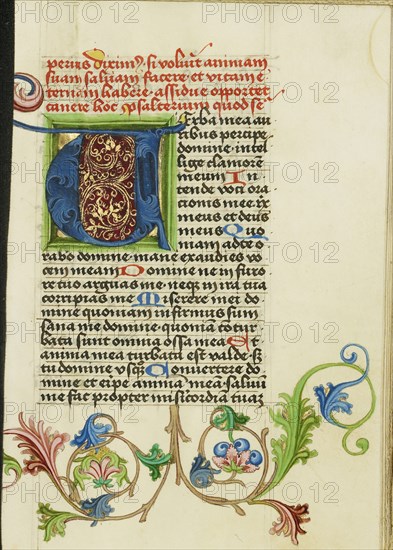 perius diximus, si voluit animam
suam salvam facere et vitam e
ternam habere assidue oportet
canere hoc psalterium quod se
Verba mea au
ribus percipe
domine intel
lige clamorē
meum In
tende voci ora
cionis mee rx
meus et deus
meus Quo
niam ad te o
rabo domine mane exaudies vo
cem meam Domine ne in furo
re tuo arguas me neqz in ira tua
corripias me Miserere mei do
mine quoniam infirmus sum
sana me domine quoniā cōtur
bata sunt omnia ossa mea Et
anima mea turbata est valde sz
tu domine usqz Convertere do
mine et eripe animā meā salvū
me fac propter misicordiā tuaz
PHOTO 12